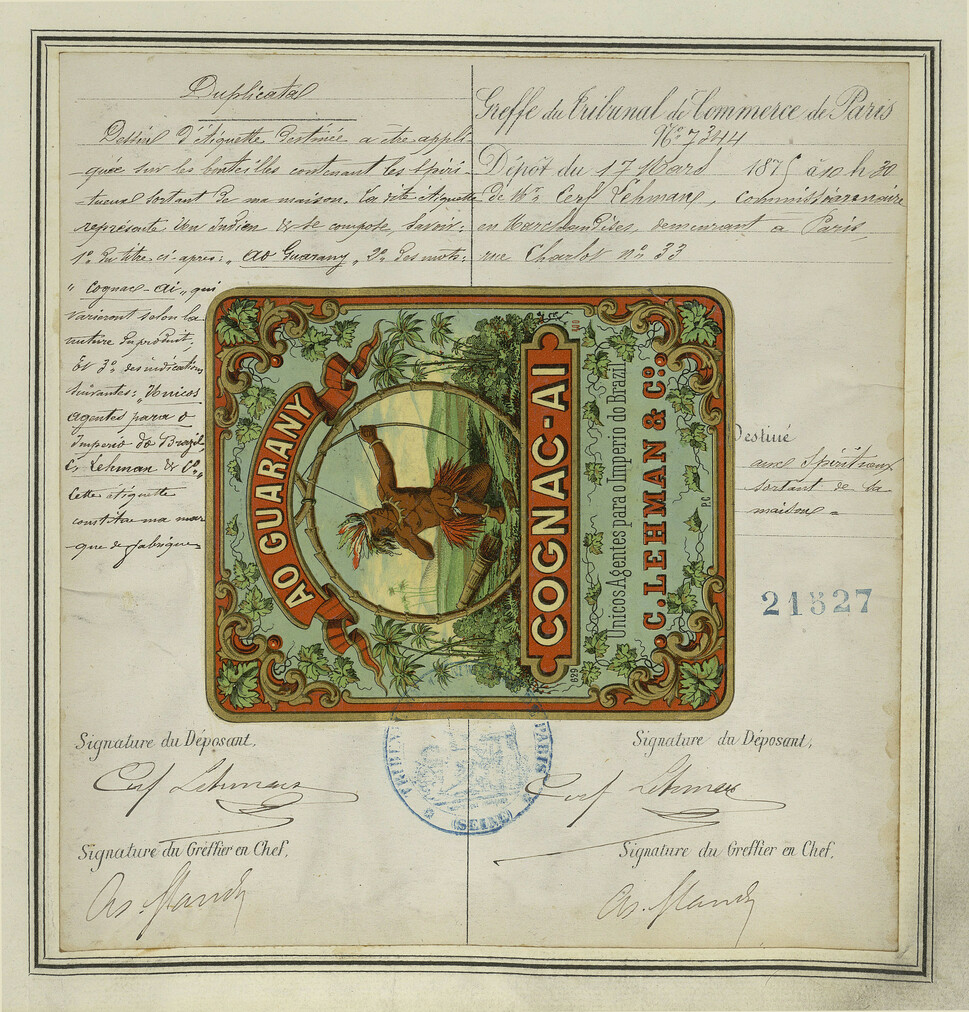 Duplicata
Dessin d'étiquette destinée a etre appli-
quée sur les bouteilles contenant les spiri-
tueux sortant de ma maison. La dite étiquette
représente un Indien & se compose, savoir:
1º du titre ci-après: "Ao Guarany" 2º des mots:
"Cognac-Ai" qui
varieront selon la
nature du produit.
Et 3º des indications
suivantes: "Unicos
Agentes para o
Imperio do Brazil,
C. Lehman & Cº"
Cette étiquette
constitue ma mar
que de fabrique
Greffe du Tribunal de Commerce de Paris
Nº 7344
Dépôt du 17 Mars 1875 à 10 h 30
de Mr. Cerf Lehman, commissionnaire
en Marchandises, demeurant à Paris,
rue Charlot nº 33
AO GUARANY
COGNAC-AI
Unicos Agentes para o Imperio do Brazil
C. LEHMAN & Cº
629
P.C
Destiné
aux Spiritueux
sortant de la
maison
21527
TRIBUNAL PARIS
(SEINE)
Signature du Déposant,
Cerf Lehman
Signature du Greffier en Chef,
Signature du Déposant,
Cerf Lehman
Signature du Greffier en Chef,